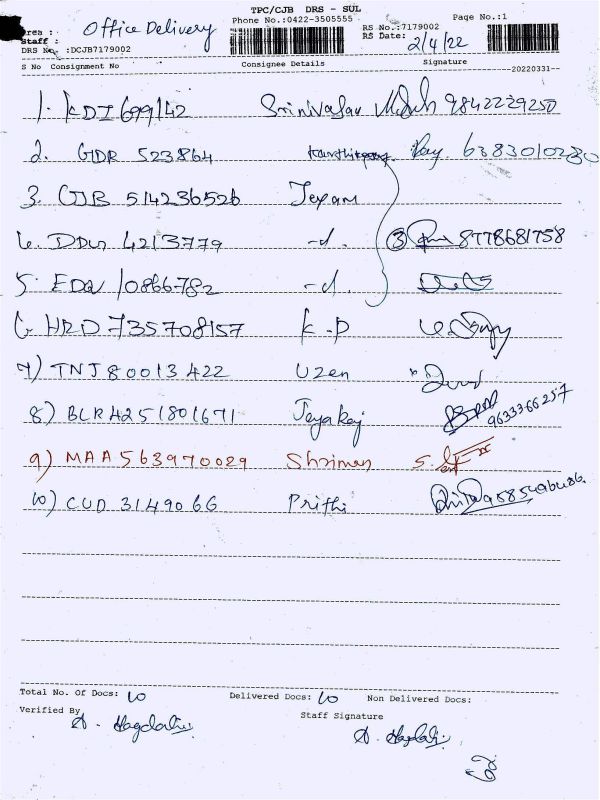 TPC/CJB DRS - SUL
Phone No.:0422-3505555 RS No.:7179002 Page No.:1
Area : Office Delivery RS Date: 2/4/22
Staff :
DRS No. :DCJB7179002
S No Consignment No Consignee Details Signature
--20220331--
1. KDI 699142 Srinivasan 9842229250
2. GDR 523864 6383010230
3. CJB 514236526 Jeyam
4. 4213779 -d. ③ 8778681758
5. 10866782 -d.
6. HRD 735708157 K.P
7) TNJ 80013422 Uzen
8) BLR4251801671 Jeyakaj 9633366257
9) MAA 563970029 S.
10) CUD 3149066 Prithi 9585496486
Total No. Of Docs: 10 Delivered Docs: 10 Non Delivered Docs:
Verified By Staff Signature